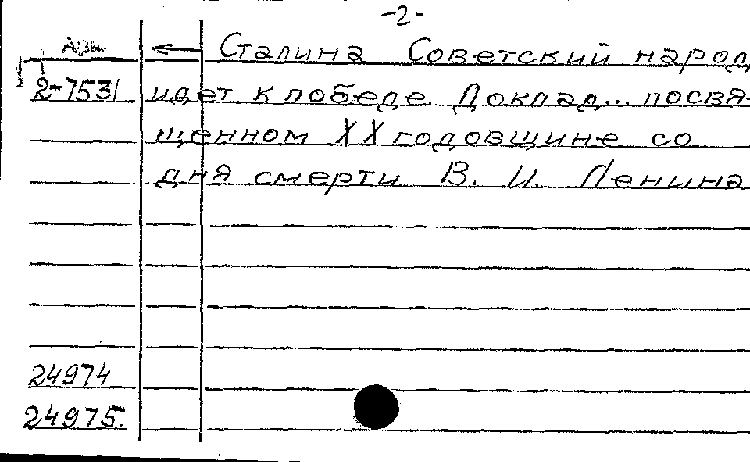 -2-
Азы ← Сталина Советский народ
2-7531 идет к победе Доклад... посвя-
щенном XX годовщине со
дня смерти В. И. Ленина
24974
24975.